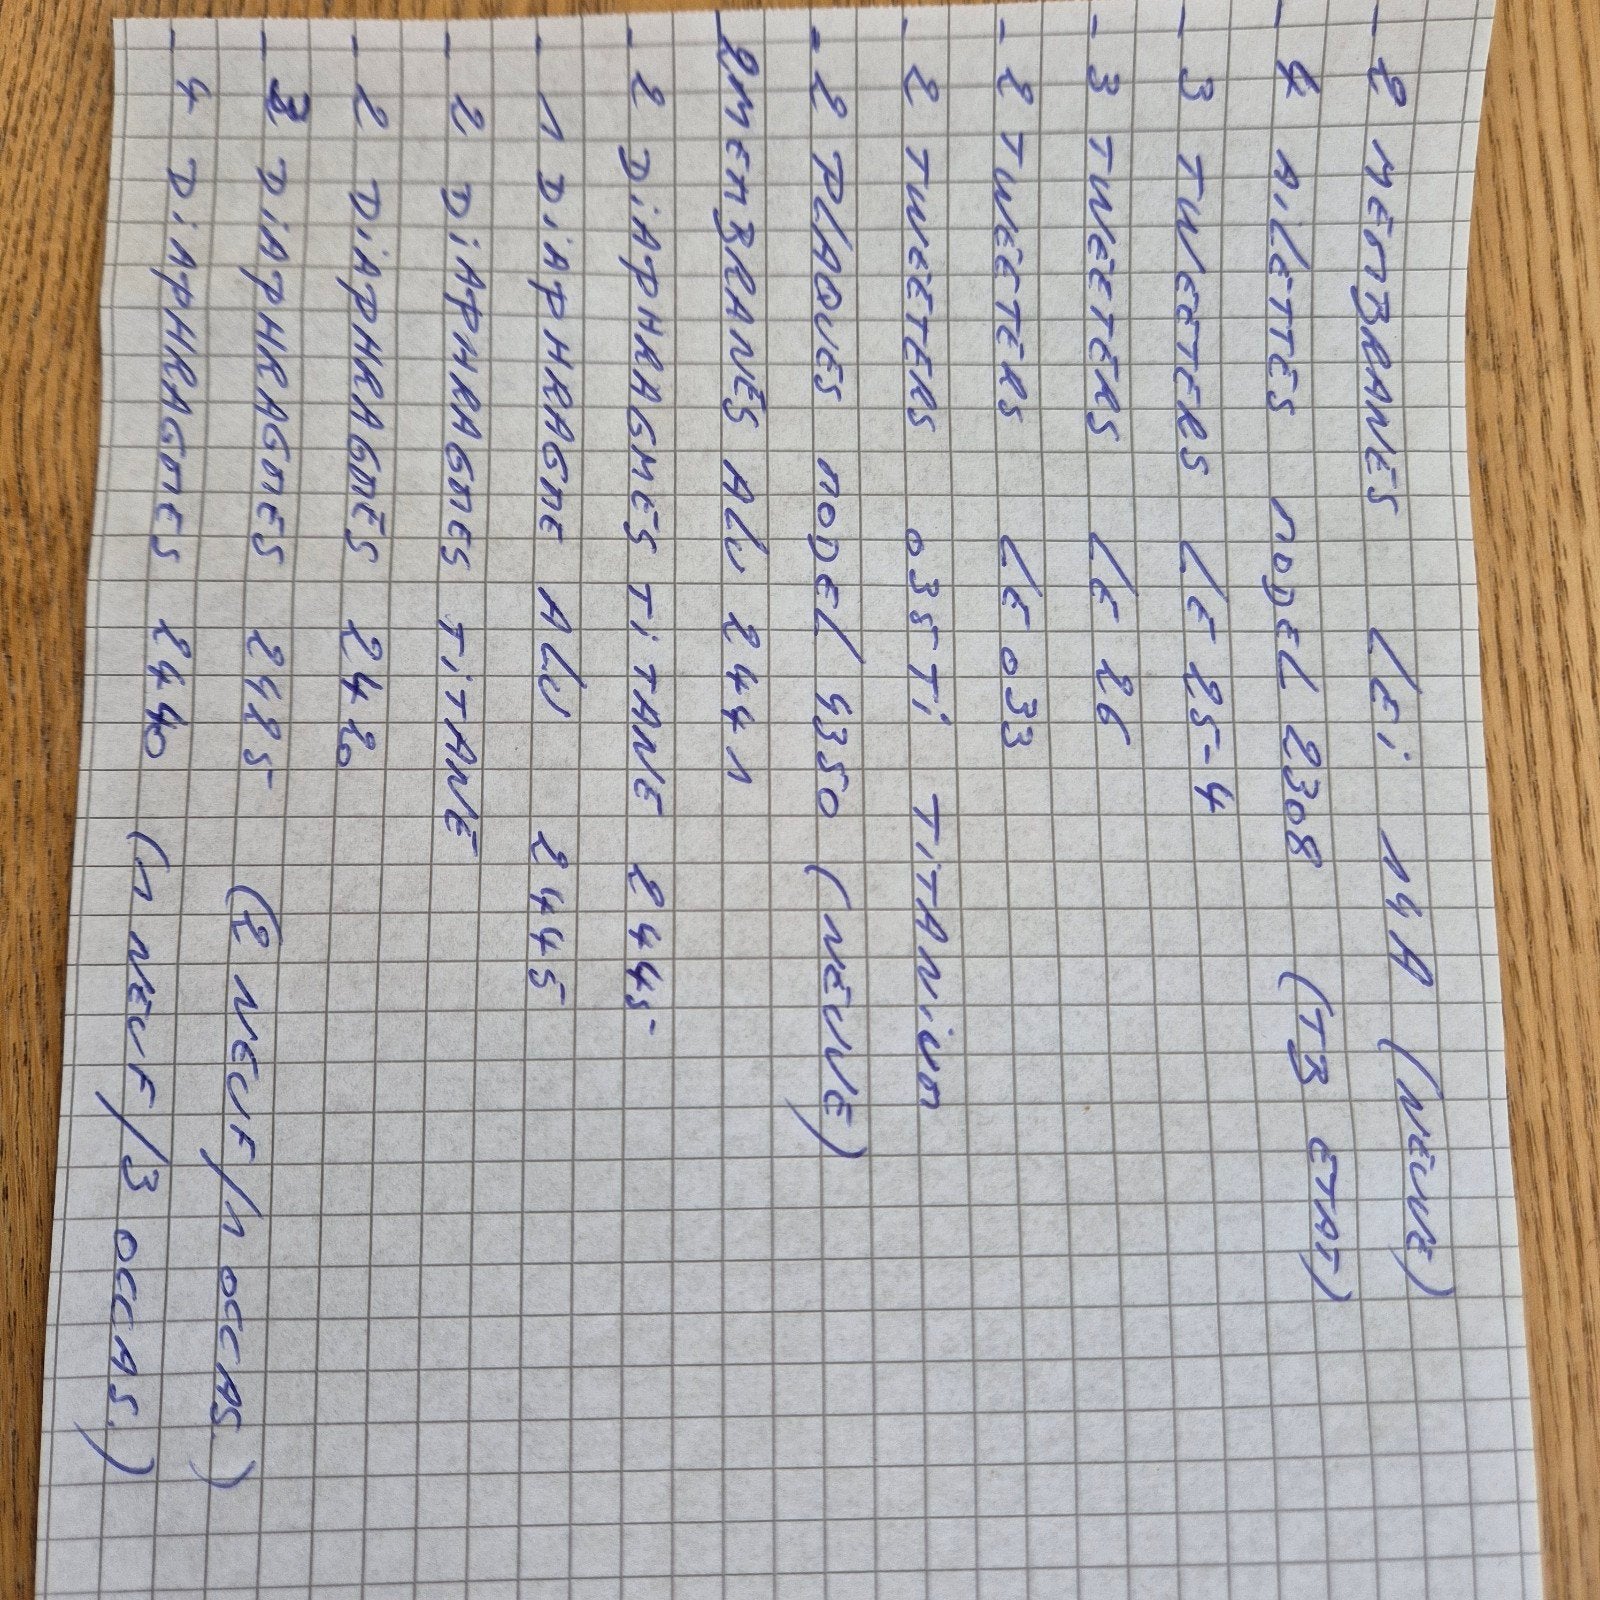 - 2 MEMBRANES LEi 14A (NEUVE)
- 4 AiLETTES MODEL 2308 (TB ETAT)
- 3 TWEETERS LE 25-4
- 3 TWEETERS LE 26
- 2 TWEETERS LE 033
- 2 TWEETERS 035Ti TiTANiUM
- 2 PLAQUES MODEL 9350 (NEUVE)
- 2 MEMBRANES ALU 2441
- 2 DiAPHRAGMES TiTANE 2445
- 1 DiAPHRAGME ALU 2445
- 2 DiAPHRAGMES TiTANE
- 2 DiAPHRAGMES 2420
- 3 DiAPHRAGMES 2425 (2 NEUF/1 OCCAS.)
- 4 DiAPHRAGMES 2440 (1 NEUF/3 OCCAS.)